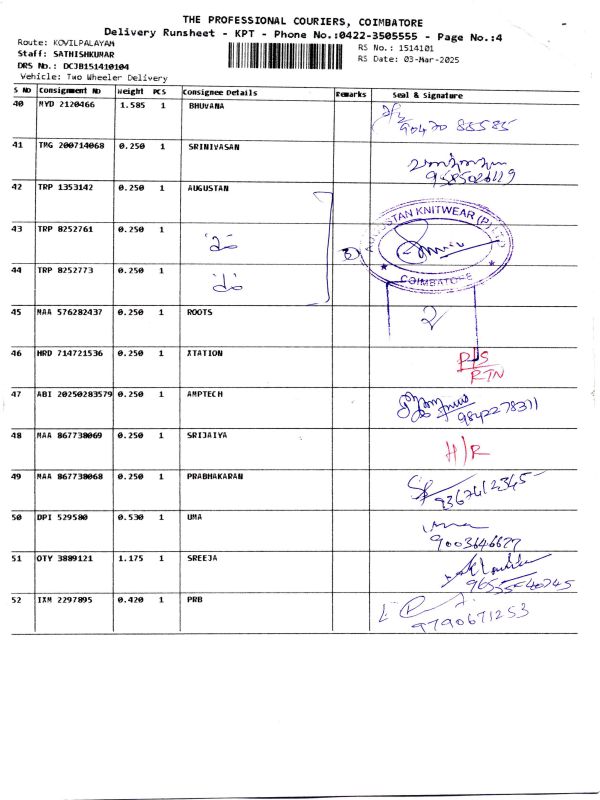 THE PROFESSIONAL COURIERS, COIMBATORE
Delivery Runsheet - KPT - Phone No.:0422-3505555 - Page No.:4
Route: KOVILPALAYAM
Staff: SATHISHKUMAR
DRS No.: DCJB151410104
Vehicle: Two Wheeler Delivery
RS No.: 1514101
RS Date: 03-Mar-2025
S No Consignment No Weight PCS Consignee Details Remarks Seal & Signature
40 MYD 2120466 1.585 1 BHUVANA
90470 85585
41 TMG 200714068 0.250 1 SRINIVASAN
9585026119
42 TRP 1353142 0.250 1 AUGUSTAN
43 TRP 8252761 0.250 1
AUGUSTAN KNITWEAR (P) LTD
COIMBATORE
44 TRP 8252773 0.250 1
45 MAA 576282437 0.250 1 ROOTS
46 HRD 714721536 0.250 1 XTATION
RTN
47 ABI 20250283579 0.250 1 AMPTECH
9842278311
48 MAA 867738069 0.250 1 SRIJAIYA H/R
49 MAA 867738068 0.250 1 PRABHAKARAN
9367412345
50 DPI 529580 0.530 1 UMA
9003646677
51 OTY 3889121 1.175 1 SREEJA
9655540745
52 IXM 2297895 0.420 1 PRB
9790671253